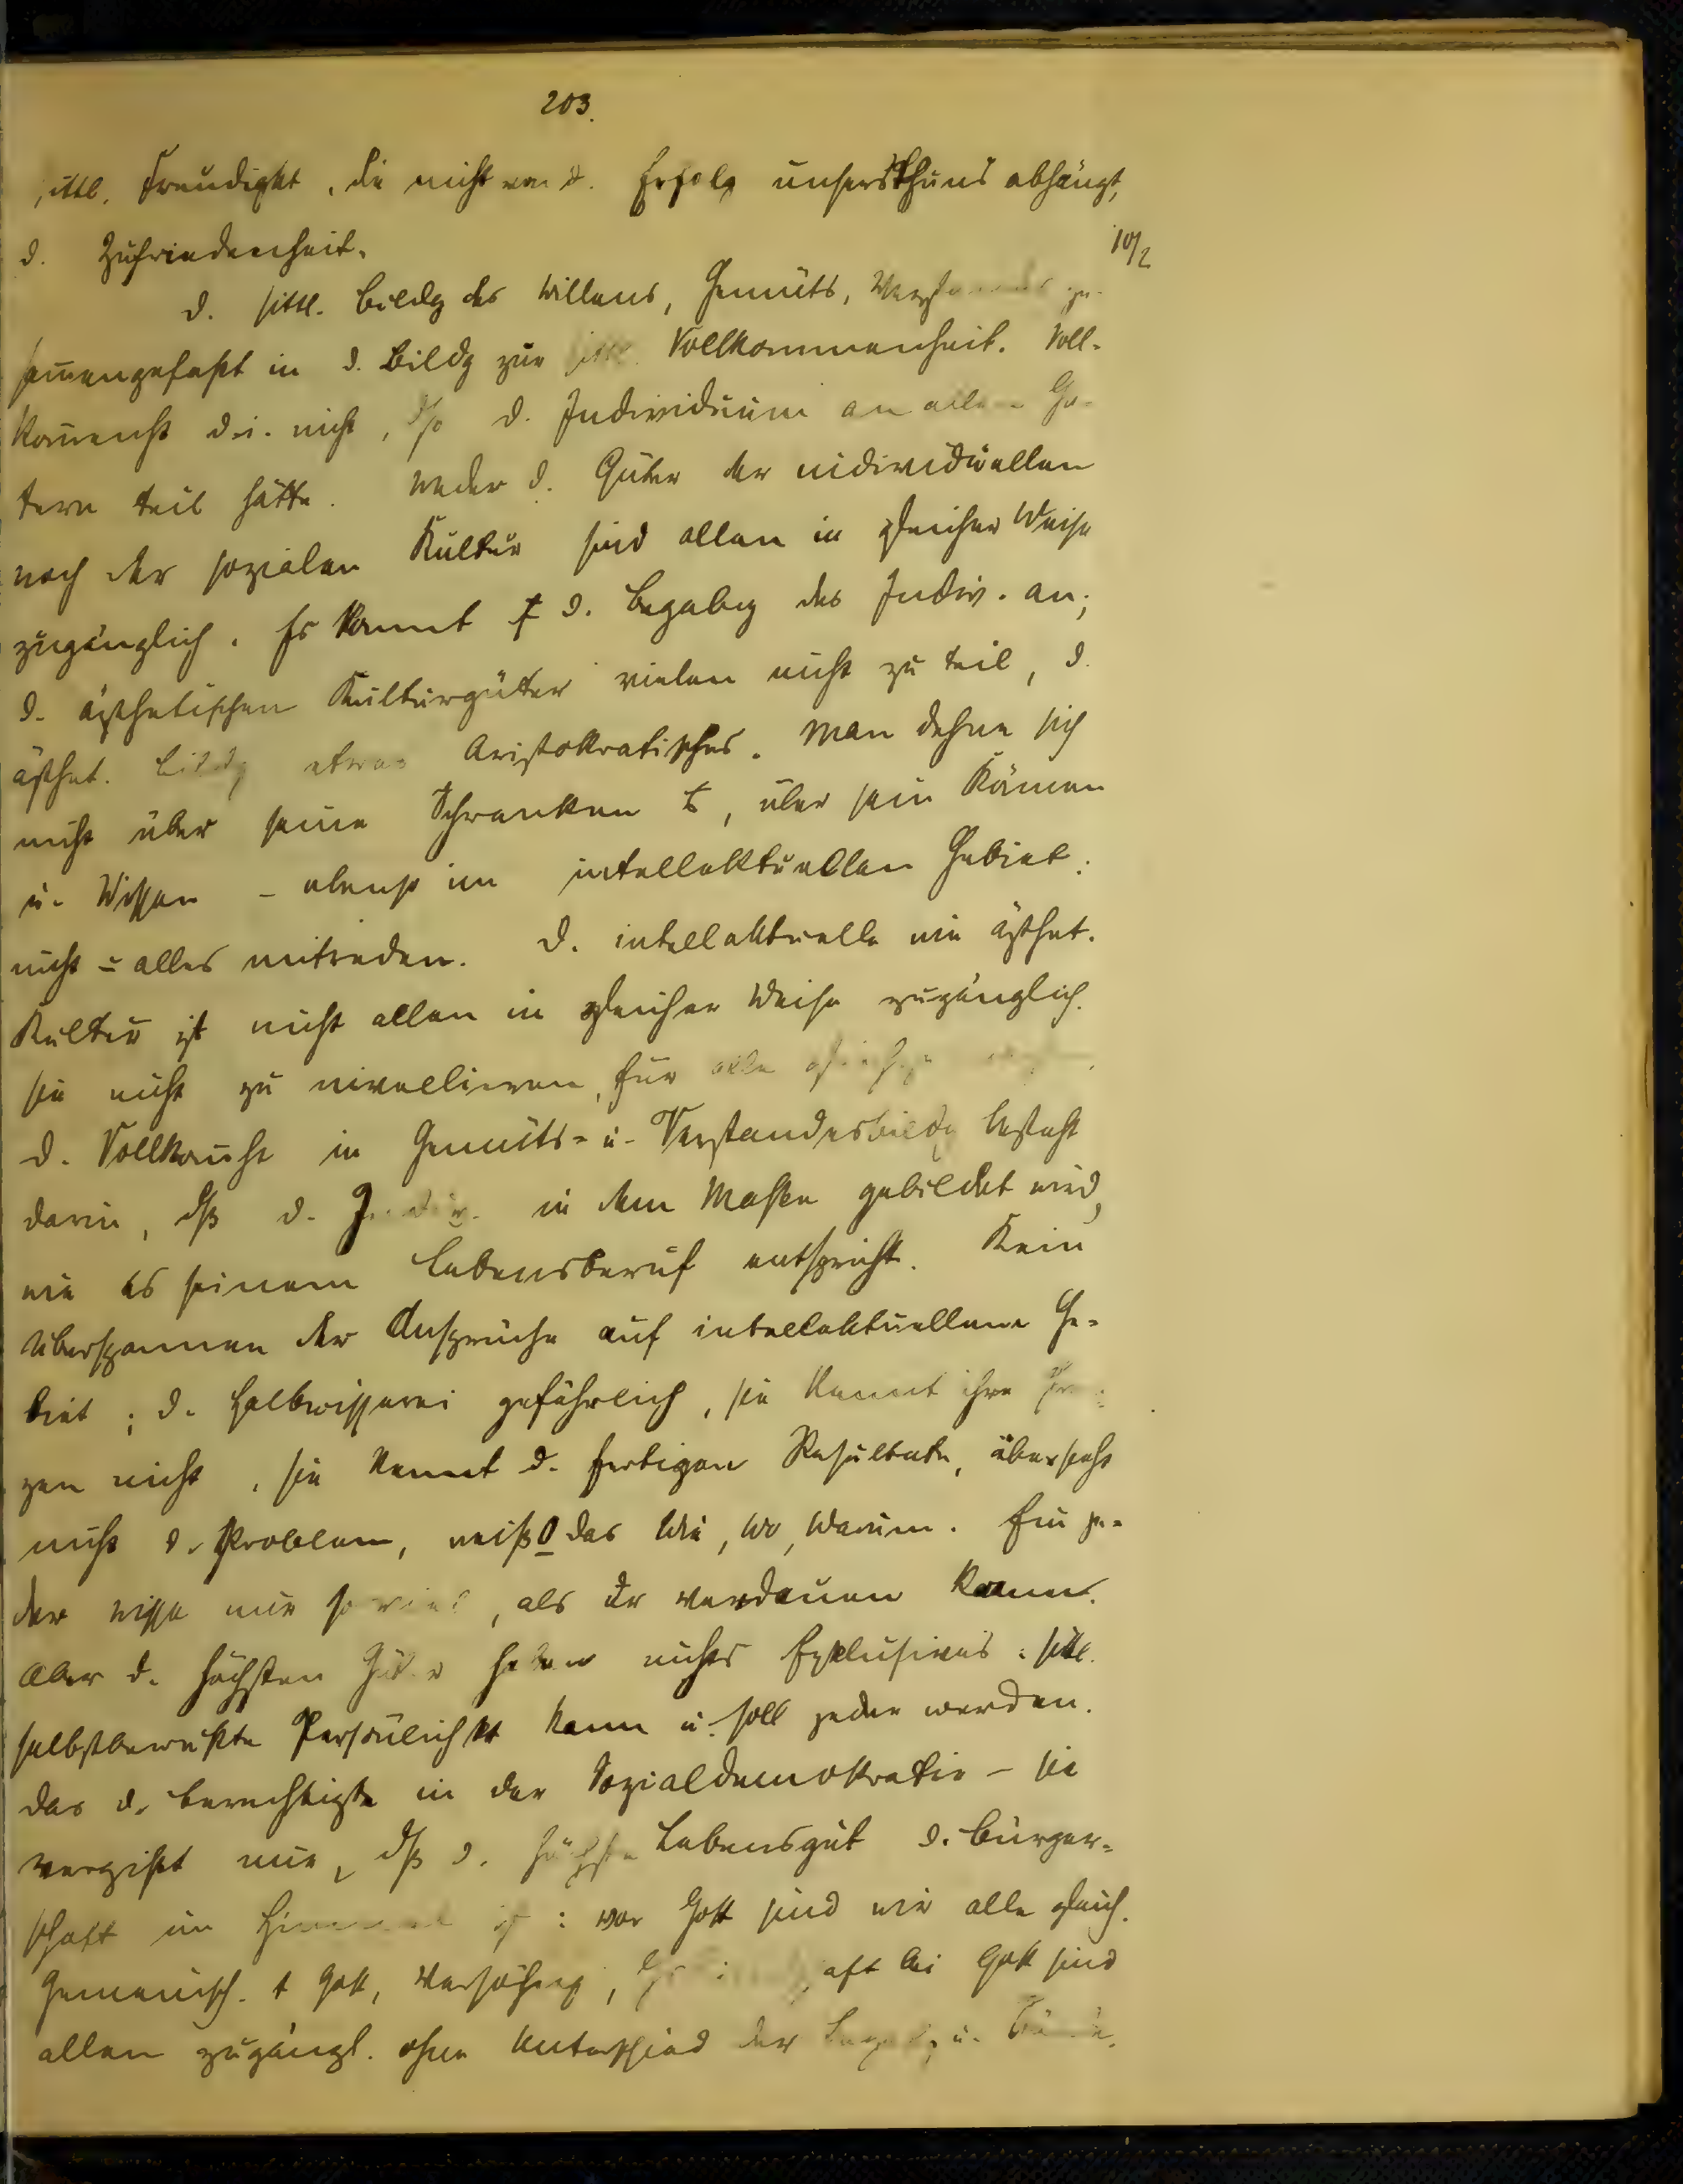 203.
sittl. Freudigkt, die nicht von d. Erfolg unsers Thuns abhängt,
d. Zufriedenheit.
10/2
D. sittl. Bildg des Willens, Gemüts, Verstandes zu-
sam̅engefaßt in d. Bildg zur sittl. Vollkommenheit. Voll-
kom̅enht d. i. nicht, dß d. Individuum an allen Gü-
tern teil hätte. Weder d. Güter der individuellen
noch der sozialen Kultur sind allen in gleicher Weise
zugänglich. Es kommt d. Begabg des Indiv. an;
d. ästhetischen Kulturgüter vielen nicht zu teil, d.
ästhet. Bildg etwas Aristokratisches. Man dehne sich
nicht über seine Schranken, über sein Können
u. Wissen – ebenso im intellektuellen Gebiet:
nicht alles mitreden. D. intellektuelle wie ästhet.
Kultur ist nicht allen in gleicher Weise zugänglich.
sie nicht zu nivellieren, für alle
D. Vollkom̅ht in Gemüts- u. Verstandesbildg besteht
darin, dß d. Indiv. in dem Maßen gebildet wird,
wie es seinem Lebensberuf entspricht. Kein
Überspannen der Ansprüche auf intellektuellem Ge-
biet; d. Halbwisserei gefährlich, sie kennt ihre Gren-
zen nicht, sie kennt d. fertigen Resultate, übersieht
nicht d. Problem, weiß 0 das Wie, Wo, Warum. Ein je-
der wisse nur so viel, als er verdauen kann.
Aber d. höchsten Güter haben nichts Exklusives: sittl.
selbstbewußte Persönlichkt kann u. soll jeder werden.
Das d. berechtigte in der Sozialdemokratie – sie
vergißt nur, dß d. höchste Lebensgut d. Bürger-
schaft im Himmel ist: vor Gott sind wir alle gleich.
Gemeinsch. t Gott, Versöhng, aft bei Gott sind
allen zugängl. ohne Unterschied der Begabg u.